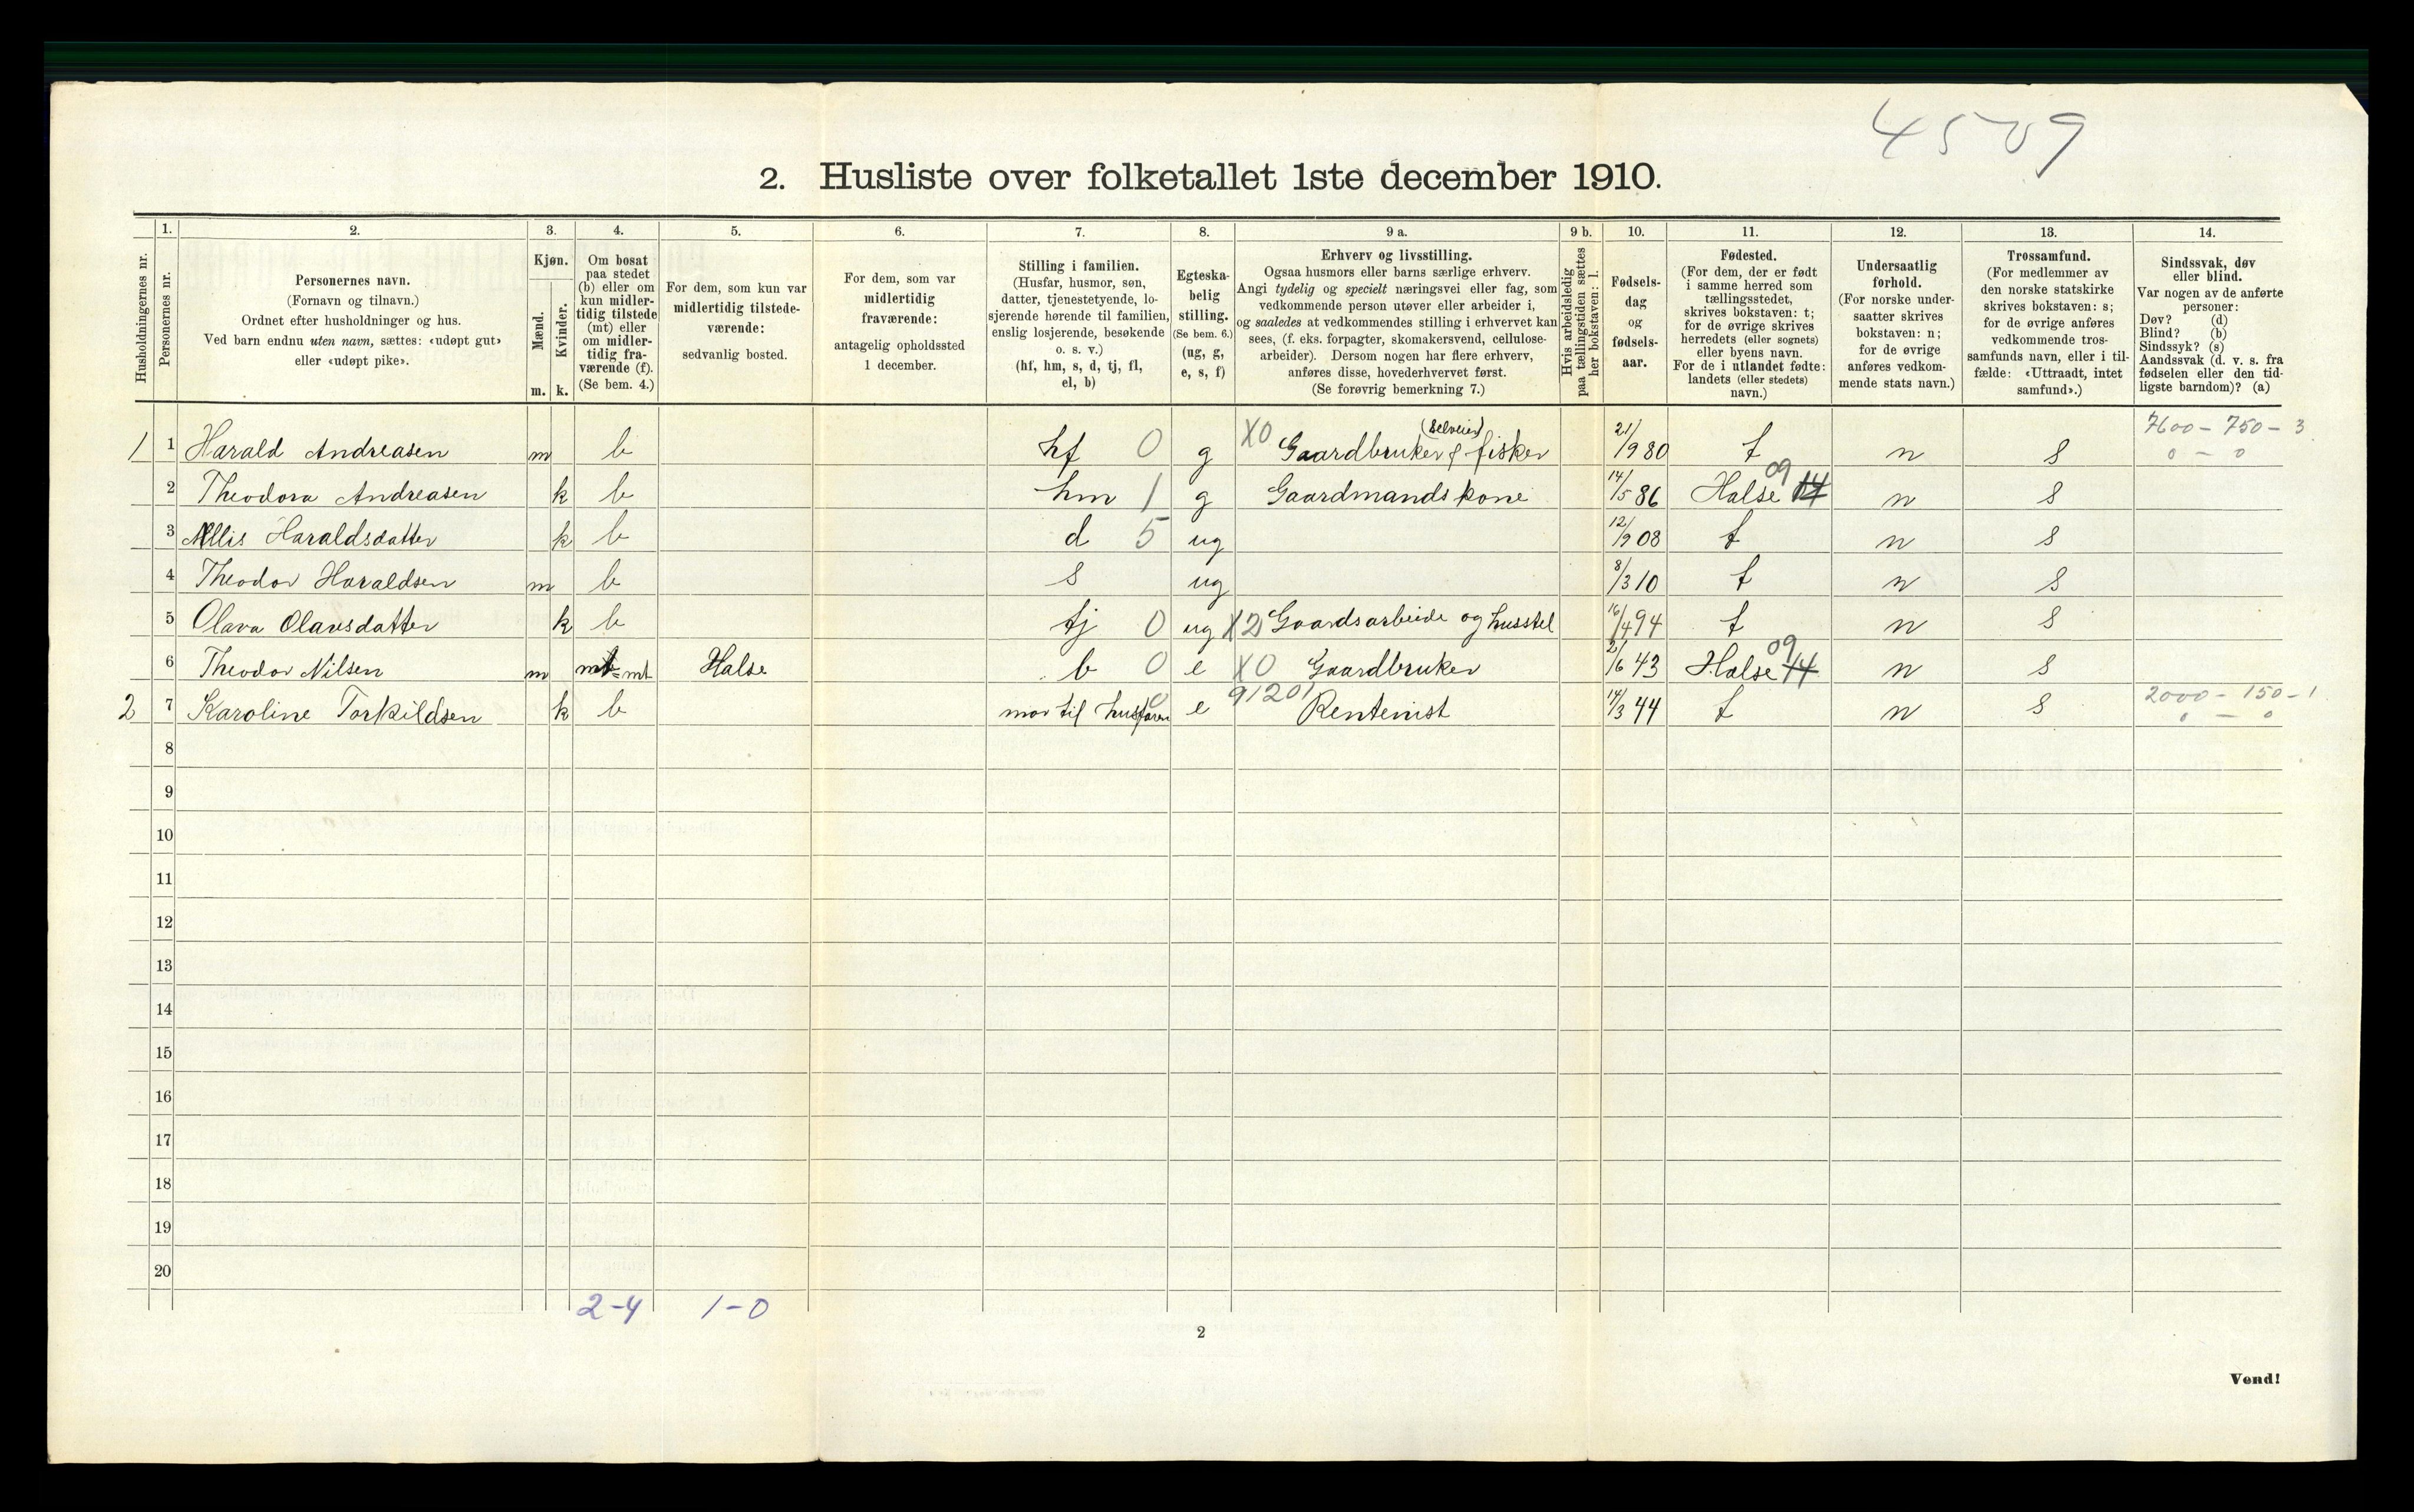 4509
2. Husliste over folketallet 1ste december 1910.
Husholdningernes nr.
1.
Personernes nr.
2.
Personernes navn.
(Fornavn og tilnavn.)
Ordnet efter husholdninger og hus.
Ved barn endnu uten navn, sættes: «udøpt gut»
eller «udøpt pike».
3.
Kjøn.
Mænd.
Kvinder.
m. k.
4.
Om bosat
paa stedet
(b) eller om
kun midler-
tidig tilstede
(mt) eller
om midler-
tidig fra-
værende (f).
(Se bem. 4.)
5.
For dem, som kun var
midlertidig tilstede-
værende:
sedvanlig bosted.
6.
For dem, som var
midlertidig
fraværende:
antagelig opholdssted
1 december.
7.
Stilling i familien.
(Husfar, husmor, søn,
datter, tjenestetyende, lo-
sjerende hørende til familien,
enslig losjerende, besøkende
o. s. v.)
(hf, hm, s, d, tj, fl,
el, b)
8.
Egteska-
belig
stilling.
(Se bem. 6.)
(ug, g,
e, s, f)
9 a.
Erhverv og livsstilling.
Ogsaa husmors eller barns særlige erhverv.
Angi tydelig og specielt næringsvei eller fag, som
vedkommende person utøver eller arbeider i,
og saaledes at vedkommendes stilling i erhvervet kan
sees, (f. eks. forpagter, skomakersvend, cellulose-
arbeider). Dersom nogen har flere erhverv,
anføres disse, hovederhvervet først.
(Se forøvrig bemerkning 7.)
9 b.
Hvis arbeidsledig
paa tællingstiden sættes
her bokstaven: l.
10.
Fødsels-
dag
og
fødsels-
aar.
11.
Fødested.
(For dem, der er født
i samme herred som
tællingsstedet,
skrives bokstaven: t;
for de øvrige skrives
herredets (eller sognets)
eller byens navn.
For de i utlandet fødte:
landets (eller stedets)
navn.)
12.
Undersaatlig
forhold.
(For norske under-
saatter skrives
bokstaven: n;
for de øvrige
anføres vedkom-
mende stats navn.)
13.
Trossamfund.
(For medlemmer av
den norske statskirke
skrives bokstaven: s;
for de øvrige anføres
vedkommende tros-
samfunds navn, eller i til-
fælde: «Uttraadt, intet
samfund».)
14.
Sindssvak, døv
eller blind.
Var nogen av de anførte
personer:
Døv? (d)
Blind? (b)
Sindssyk? (s)
Aandssvak (d. v. s. fra
fødselen eller den tid-
ligste barndom)? (a)
1 1 Harald Andreasen m b hf 0 g X0 Gaardbruker (selveier) & fisker 21/9 80 t n s 7600 - 750 - 3 0 - 0
2 Theodora Andreasen k b hm 1 g Gaardmandskone 14/5 86 Halse 09 14 n s
3 Allis Haraldsdatter k b d 5 ug 12/9 08 t n s
4 Theodor Haraldsen m b s ug 8/3 10 t n s
5 Olava Olausdatter k b tj 0 ug X2 Gaardsarbeide og husstel 16/4 94 t n s
6 Theodor Nilsen m mt Halse b 0 e X0 Gaardbruker 21/6 43 Halse 09 14 n s
2 7 Karoline Torkildsen k b mor til husfaren 0 e 91201 Rentenist 14/3 44 t n s 2000 - 150 - 1 0 - 0
8
9
10
11
12
13
14
15
16
17
18
19
20
2-4 1-0
2
Vend!